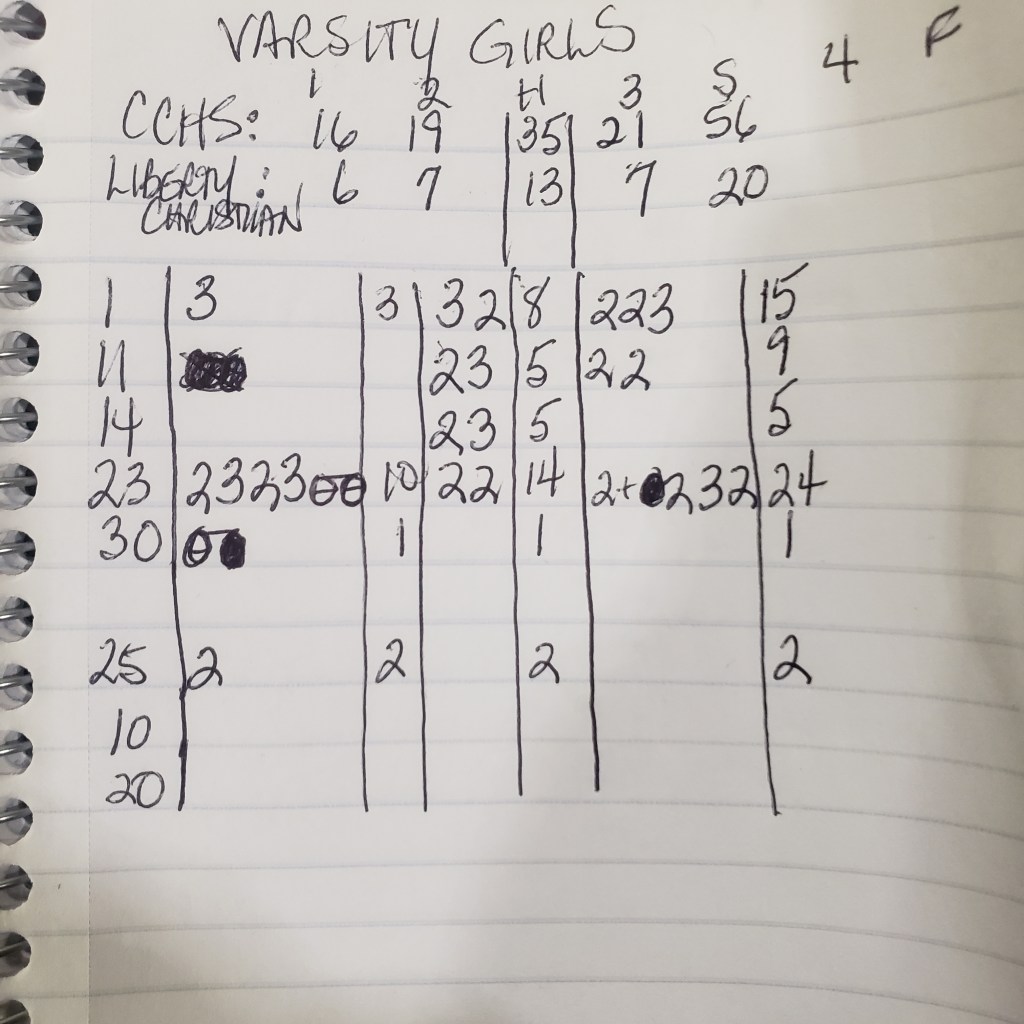 VARSITY GIRLS
1 2 H 3 S 4 F
CCHS: 16 19 35 21 56
LIBERTY: 6 7 13 7 20
CHRISTIAN
1 3 3 32 8 223 15
11 23 5 22 9
14 23 5 5
23 2323 10 22 14 2+ 232 24
30 1 1 1
25 2 2 2 2
10
20